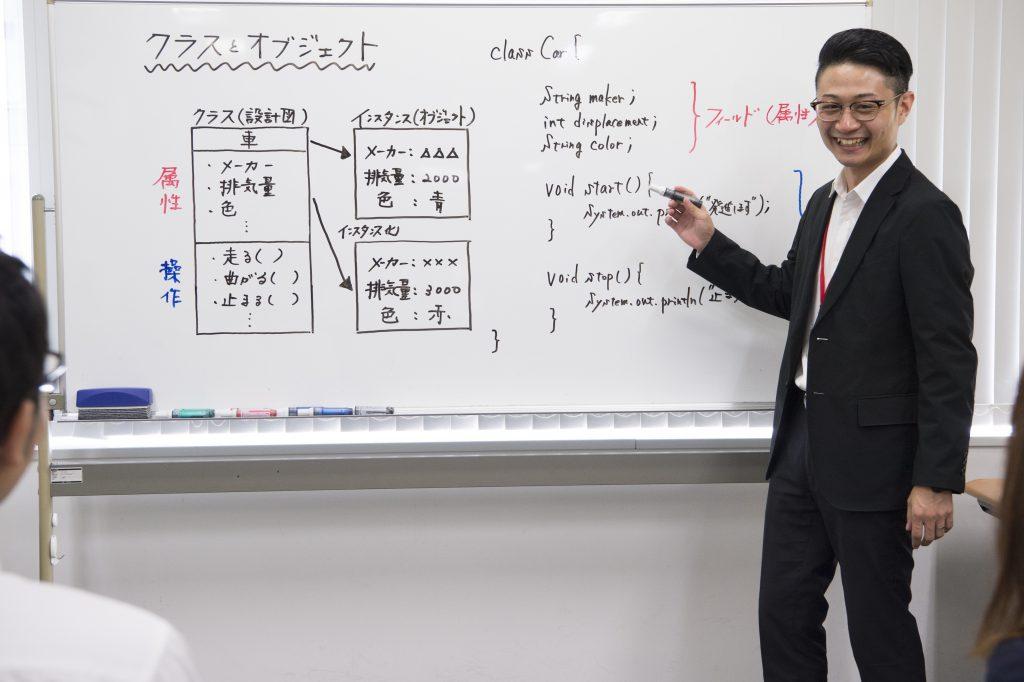 クラスとオブジェクト
クラス(設計図)
車
・メーカー
・排気量
・色
⋮
・走る( )
・曲がる( )
・止まる( )
⋮
属性
操作
インスタンス(オブジェクト)
メーカー:△△△
排気量:2000
色:青
インスタンス化
メーカー:×××
排気量:3000
色:赤
class Car {
String maker;
int displacement;
String color;
} フィールド(属性)
void start() {
System.out.pr ("発進します");
}
void stop() {
System.out.println("止ま
}
}